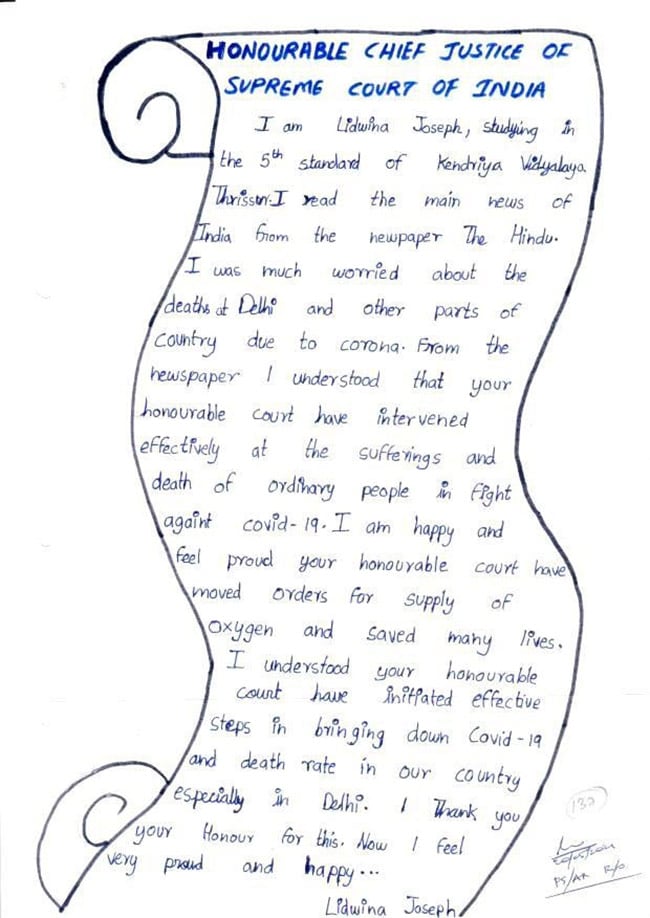 HONOURABLE CHIEF JUSTICE OF
SUPREME COURT OF INDIA
I am Lidwina Joseph, studying in
the 5th standard of Kendriya Vidyalaya
Thrissur. I read the main news of
India from the newspaper The Hindu.
I was much worried about the
deaths at Delhi and other parts of
country due to corona. From the
newspaper I understood that your
honourable court have intervened
effectively at the sufferings and
death of ordinary people in fight
againt covid-19. I am happy and
feel proud your honourable court have
moved orders for supply of
oxygen and saved many lives.
I understood your honourable
court have initiated effective
steps in bringing down Covid-19
and death rate in our country
especially in Delhi. I Thank you
your Honour for this. Now I feel
very proud and happy...
Lidwina Joseph
132
PS/AR R/O.